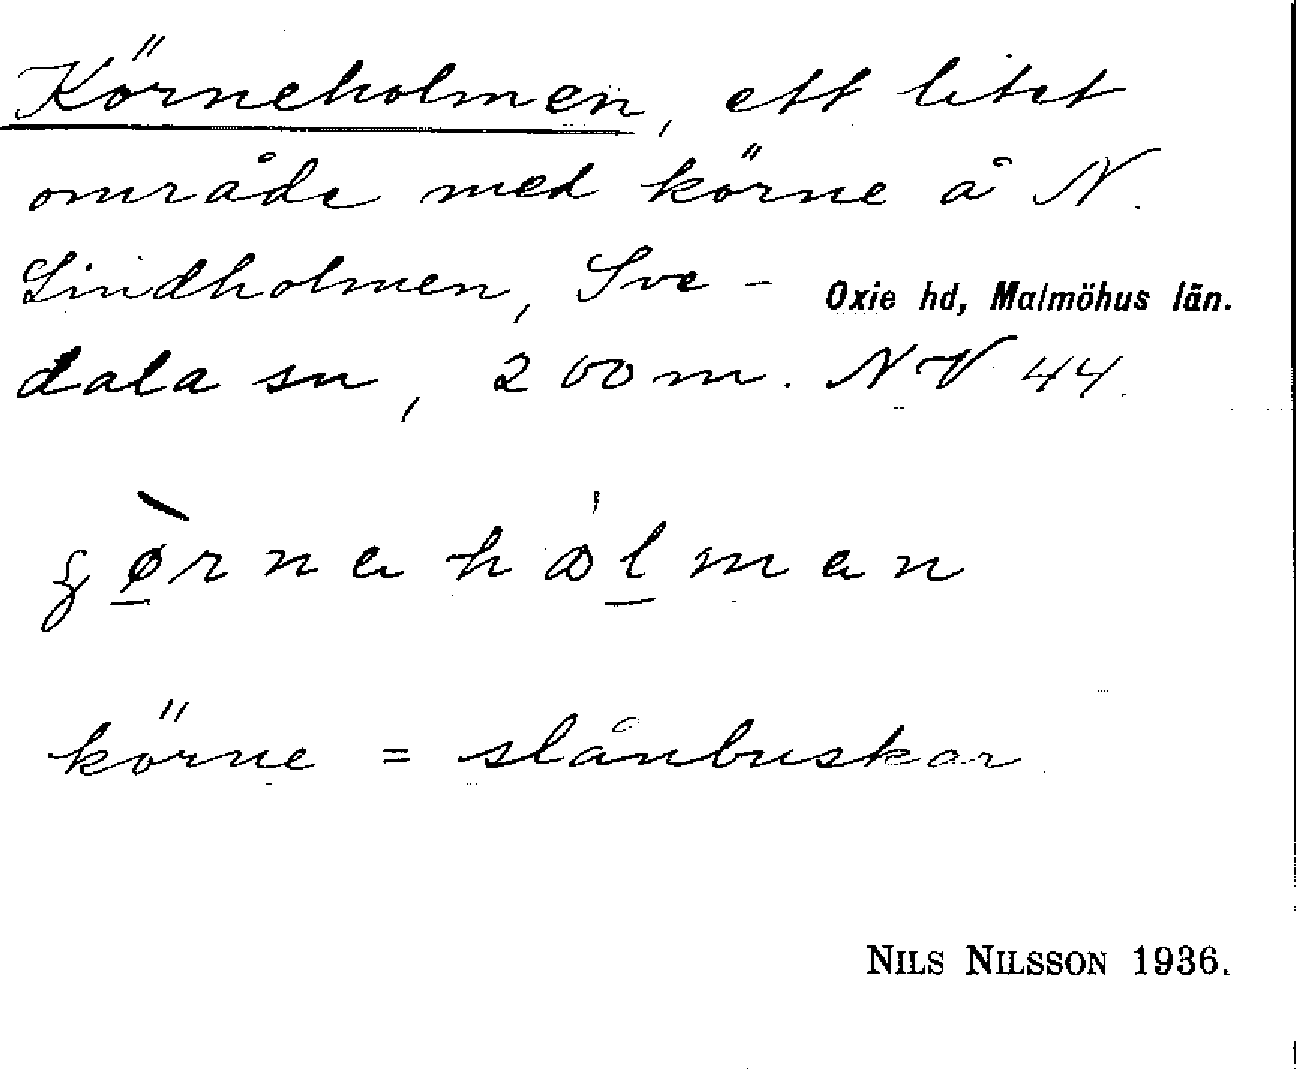 Körneholmen, ett litet
område med körne å N.
Lindholmen, Sve-
Oxie hd, Malmöhus län.
dala sn, 200 m. NV 44.
körne = slånbuskar
NILS NILSSON 1936.